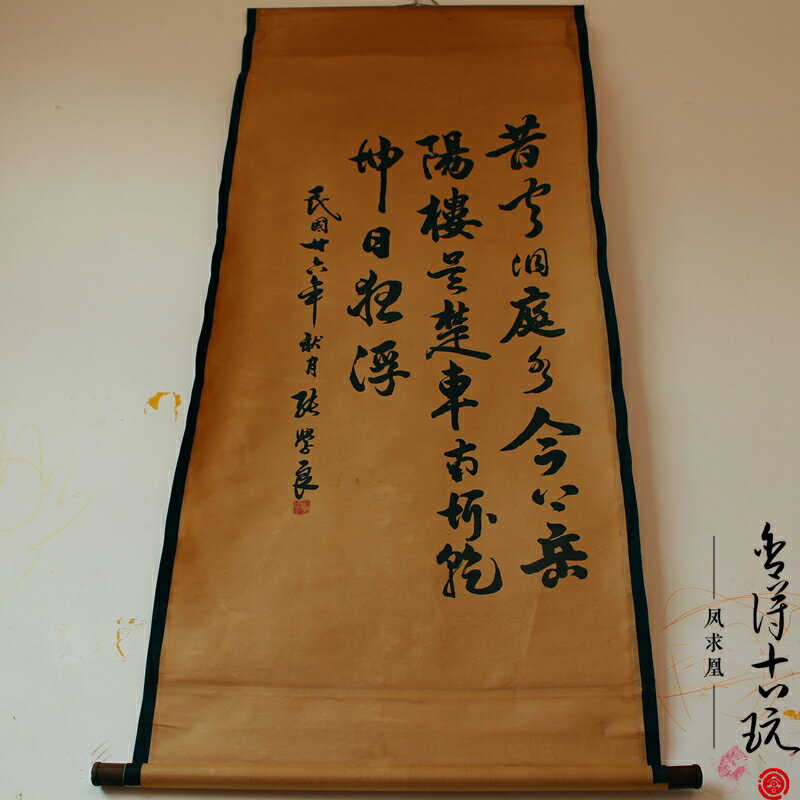 昔聞洞庭水今上岳
陽樓吳楚東南坼乾
坤日夜浮
民國廿六年秋月 張學良
凤求凰
舍得十八玩